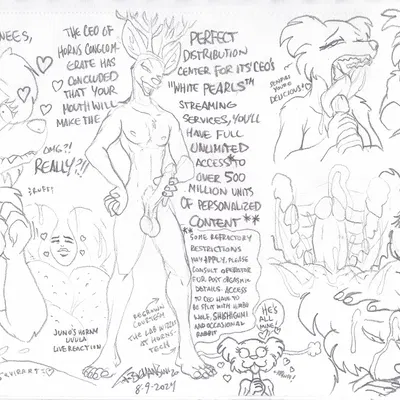 NEES,
THE CEO OF
HORNS CONGLOM-
ERATE HAS
CONCLUDED
THAT YOUR
MOUTH WILL
MAKE THE
PERFECT
DISTRIBUTION
CENTER FOR ITS' CEO'S
"WHITE PEARLS"™
STREAMING
SERVICES, YOU'LL
HAVE FULL
UNLIMITED
ACCESS* TO
OVER 500
MILLION UNITS
OF PERSONALIZED
CONTENT**
OMG?!
REALLY?!
DELICIOUS
**SOME REFRACTORY
RESTRICTIONS
MAY APPLY. PLEASE
CONSULT OPERATOR
FOR POST ORGASMIC
DETAILS. ACCESS
TO CEO HAVE TO
BE SPLIT WITH
WOLF, SHISHIGUNI
AND OCCASIONAL
RABBIT
JUNO'S HORNY
UVULA
LIVE REACTION
COURTESY
THE LAB
AT HORNS
TECH
8-9-2024
HE'S
ALL
MINE!